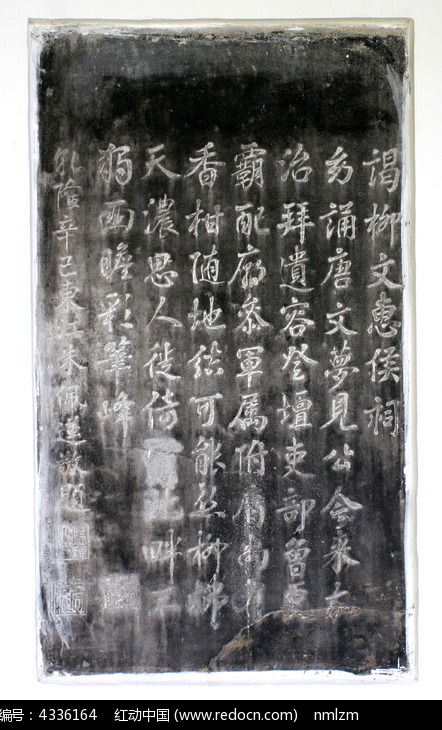 謁柳文惠侯祠
幼誦唐文夢見公今来
治拜遺容登壇吏部曾
霸配廟參軍屬附
香柑随地結可能無柳拂
天濃思人徙倚北畔
獨西瞻彩筆峰
乾隆辛巳東江朱佩蓮敬題
编号：4336164 红动中国 (www.redocn.com) nmlzm